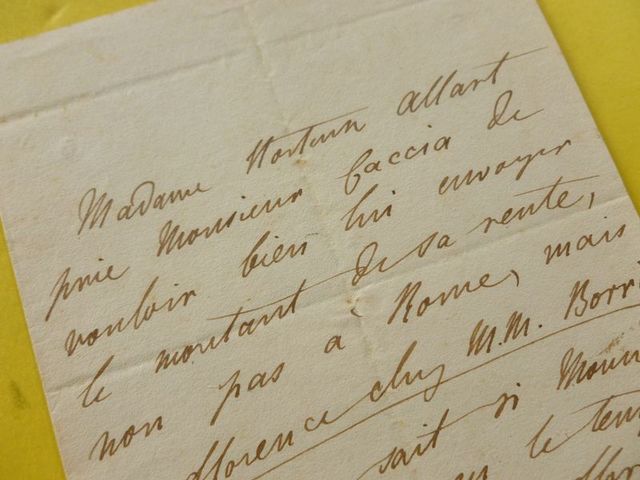 Madame Hortense Allart
prie Monsieur Caccia de
vouloir bien lui envoyer
le montant de sa rente,
non pas à Rome, mais
Florence chez M.M. Borri
sait si Mons
le tem